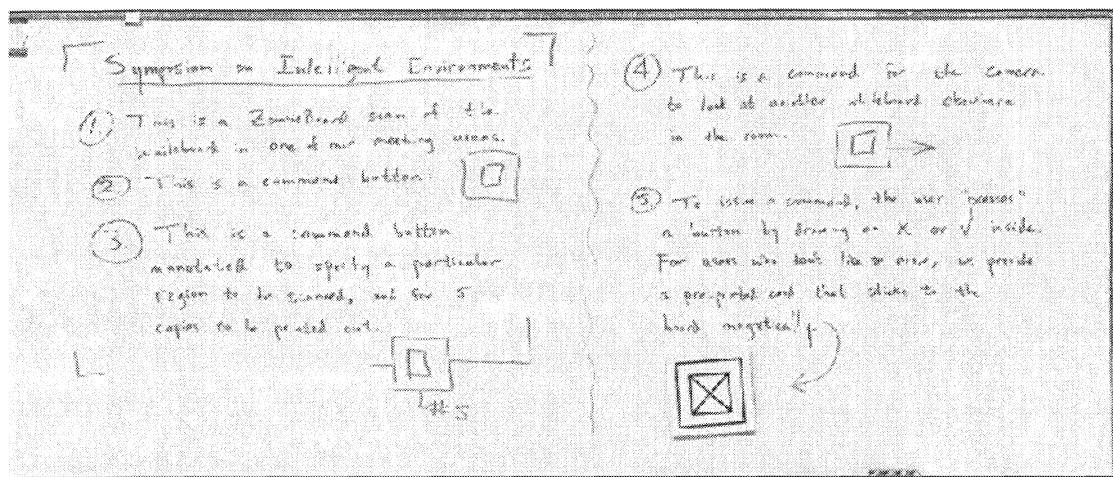 Symposium on Intelligent Environments
① This is a ZombieBoard scan of the
whiteboard in one of our meeting rooms.
② This is a command button
③ This is a command button
annotated to specify a particular
region to be scanned, and for 5
copies to be printed out.
#5
④ This is a command for the camera
to look at another whiteboard elsewhere
in the room.
⑤ To issue a command, the user "presses"
a button by drawing an X or √ inside.
For users who don't like to draw, we provide
a pre-printed card that sticks to the
board magnetically.